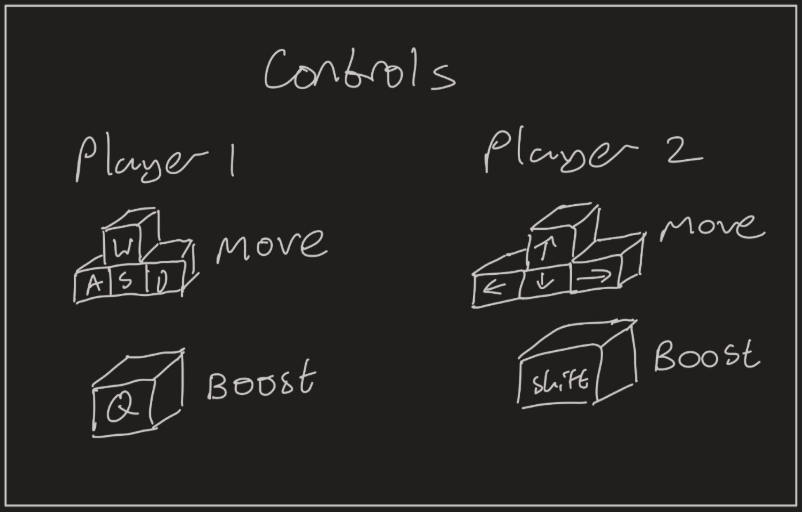 Controls
Player 1
W
A S D
Move
Q
Boost
Player 2
↑
← ↓ →
Move
shift
Boost